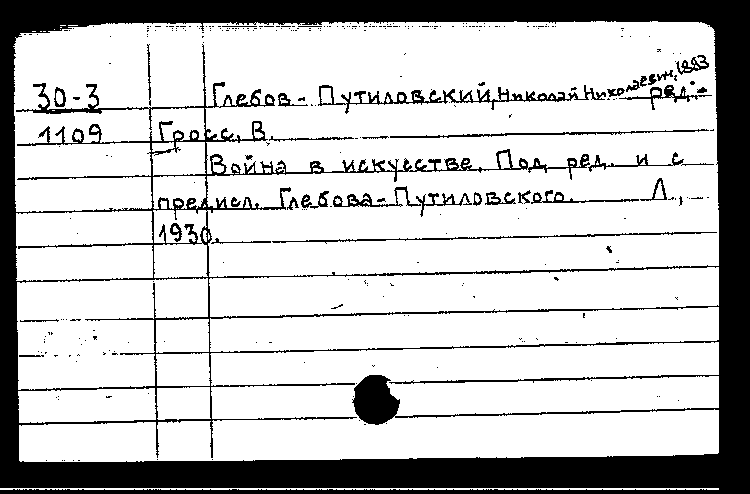 30-3 Глебов - Путиловский, Николай Николаевич, 1883 ред.-
1109 Гросс, В.
Война в искусстве. Под ред. и с
предисл. Глебова-Путиловского. Л,
1930.